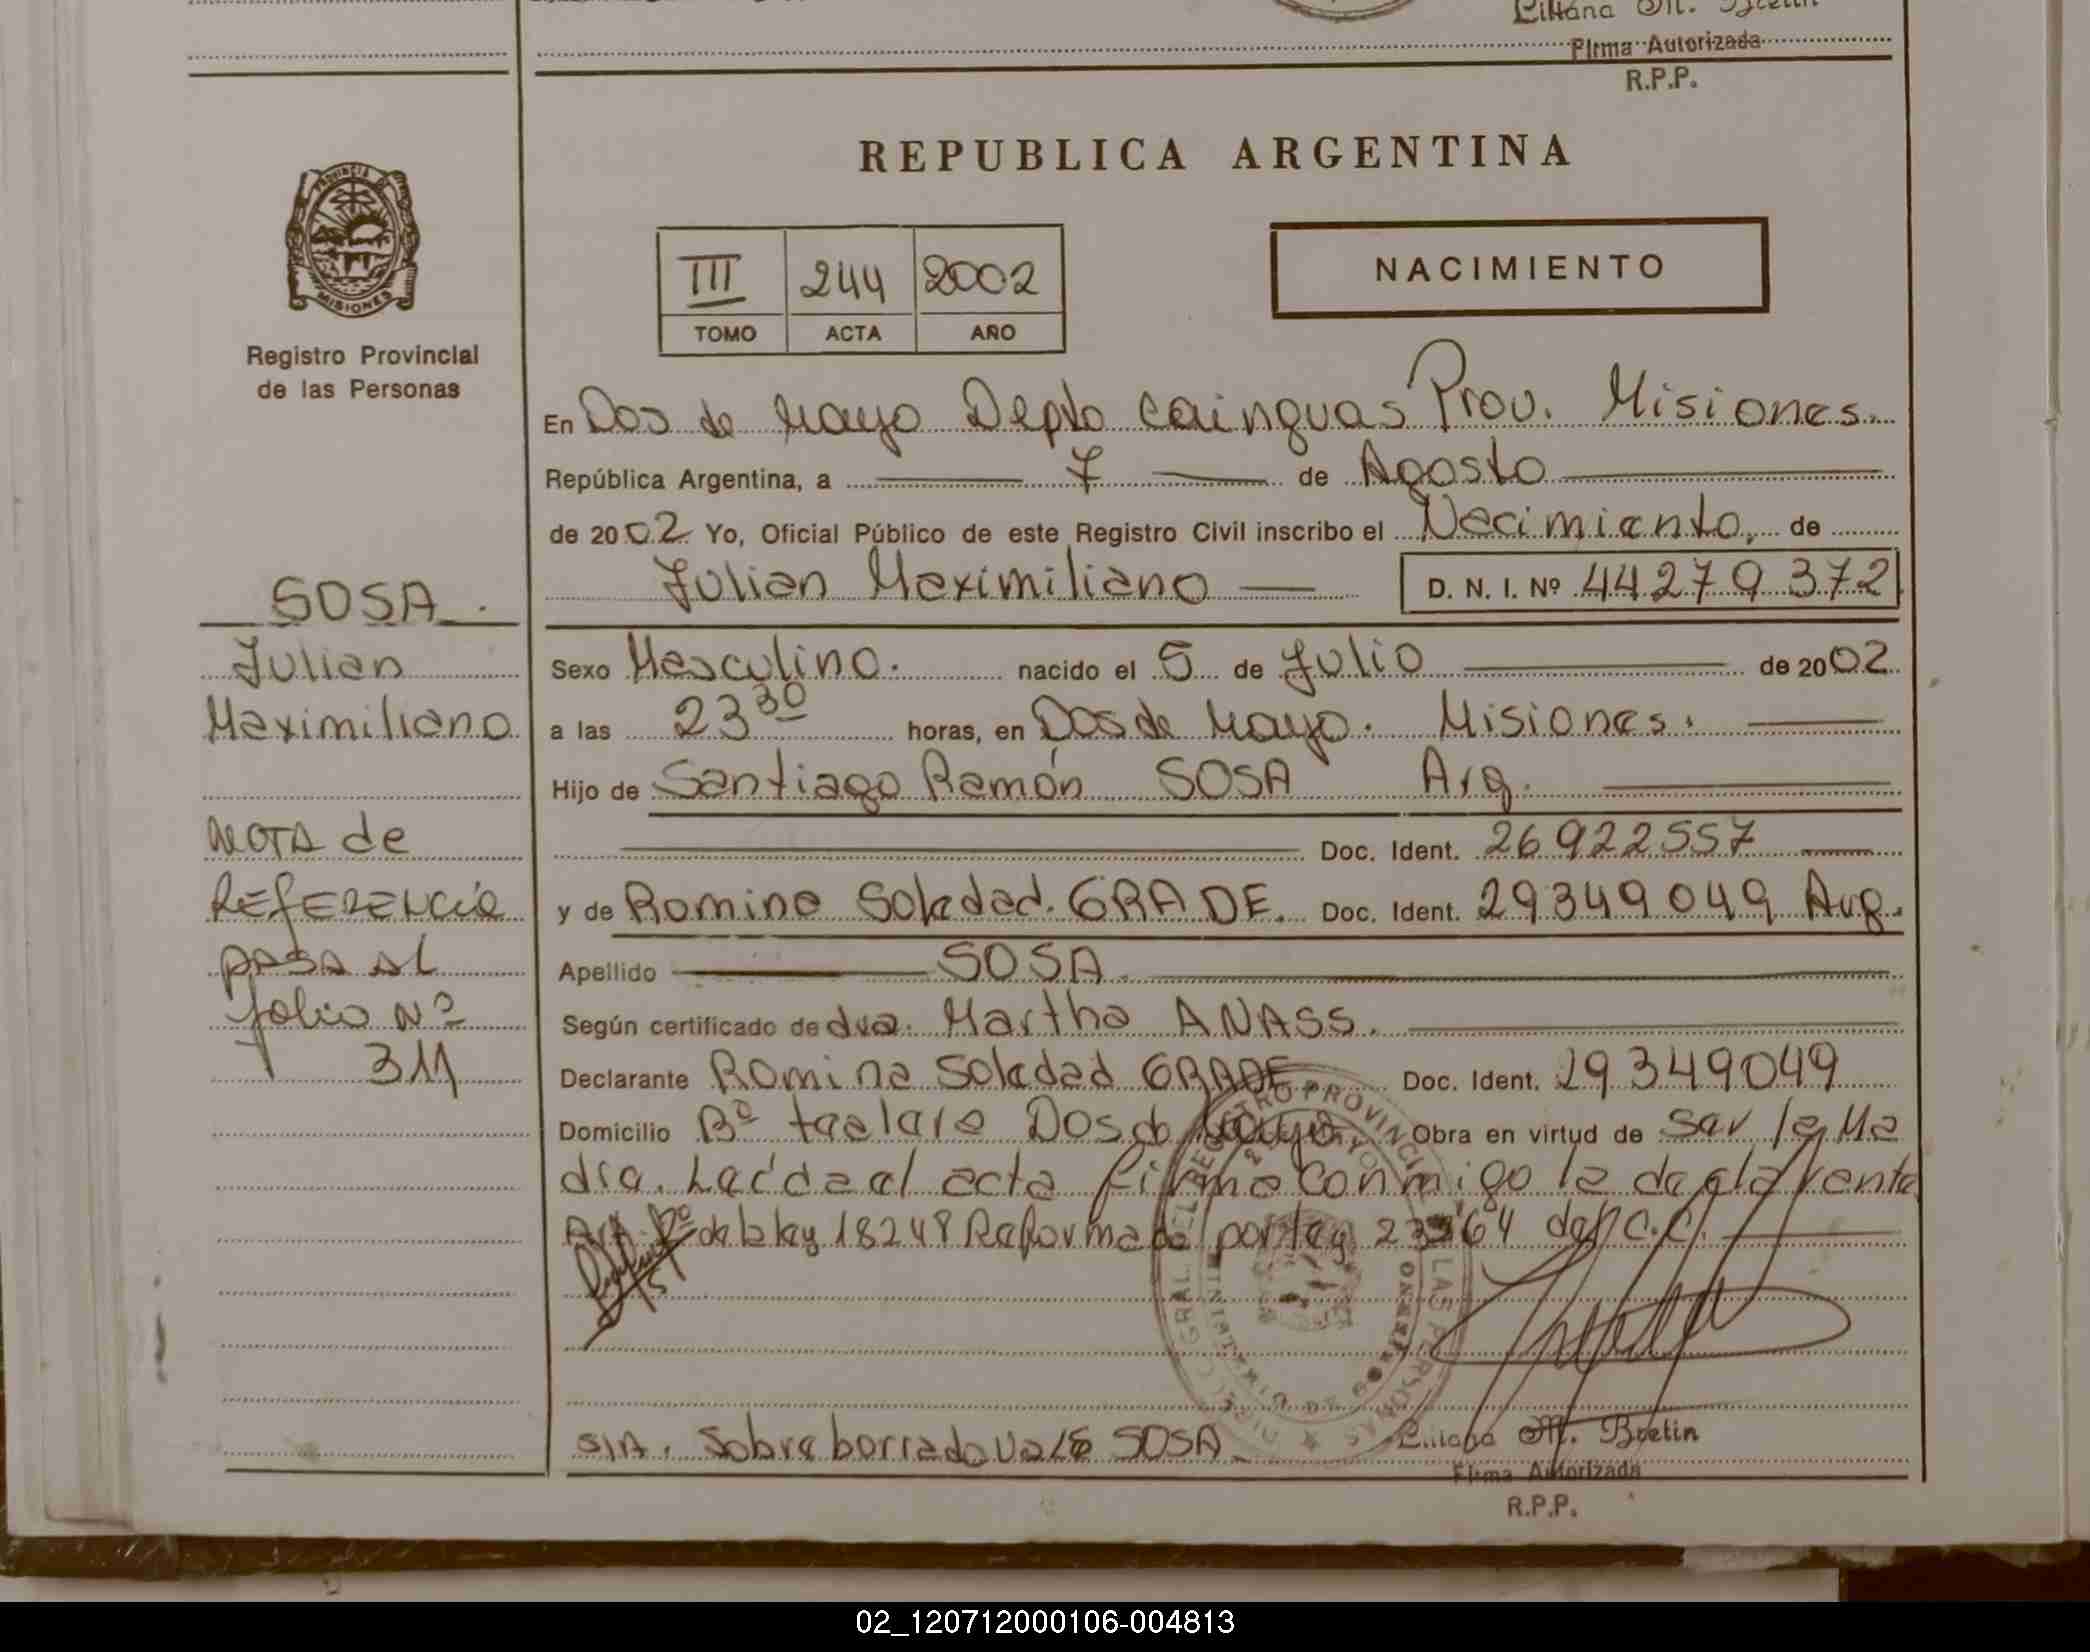 Liliana M. Bretin
Firma Autorizada
R.P.P.
REPUBLICA ARGENTINA
PROVINCIA DE
MISIONES
III 244 2002
TOMO ACTA AÑO
NACIMIENTO
Registro Provincial
de las Personas
En Dos de Mayo Depto Cainguas Prov. Misiones.
República Argentina, a 7 de Agosto
de 2002 Yo, Oficial Público de este Registro Civil inscribo el Nacimiento, de
Julian Maximiliano D. N. I. Nº 44279372
SOSA.
Julian
Maximiliano
Sexo Masculino. nacido el 5 de Julio de 2002
a las 23 30 horas, en Dos de Mayo. Misiones.
Hijo de Santiago Ramón SOSA Arg.
Doc. Ident. 26922557
y de Romina Soledad. GRADE. Doc. Ident. 29349049 Arg.
Apellido SOSA
Según certificado de dra. Martha ANASS.
Declarante Romina Soledad GRADE Doc. Ident. 29349049
Domicilio Bº Dos de Mayo Obra en virtud de Ser la Ma
dre. Leída el acta firma conmigo la declarante
Art. de la ley 18248 Reformada por ley 23264 del C.C.
NOTA de
REFERENCIA
PASA AL
folio Nº
311
S/A. Sobre borrado Vale SOSA
Liliana M. Bretin
Firma Autorizada
R.P.P.
02_120712000106-004813